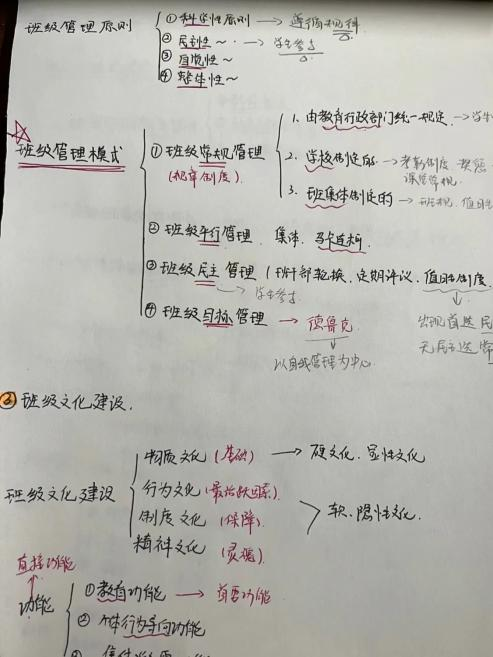 班级管理原则
①科学性原则 → 遵循规律
② 民主性~ → 学生参与
③ 自觉性~
④ 整体性~
班级管理模式
① 班级常规管理
(规章制度)
1. 由教育行政部门统一规定 →学生
2. 学校制定的 → 考勤制度 奖惩
课堂常规
3. 班集体制定的 → 班规 值日
② 班级平行管理 集体. 马卡连柯.
③ 班级民主管理 (班干部轮换、定期评议、值日制度
→ 学生参与
④ 班级目标管理 → 德鲁克
以自我管理为中心
出现首选民
无民主选常
③ 班级文化建设.
班级文化建设
物质文化 (基础) → 硬文化. 显性文化
行为文化 (最活跃因素)
制度文化 (保障)
精神文化 (灵魂)
软. 隐性文化.
直接功能
功能
①教育功能 → 首要功能
② 个体行为导向功能